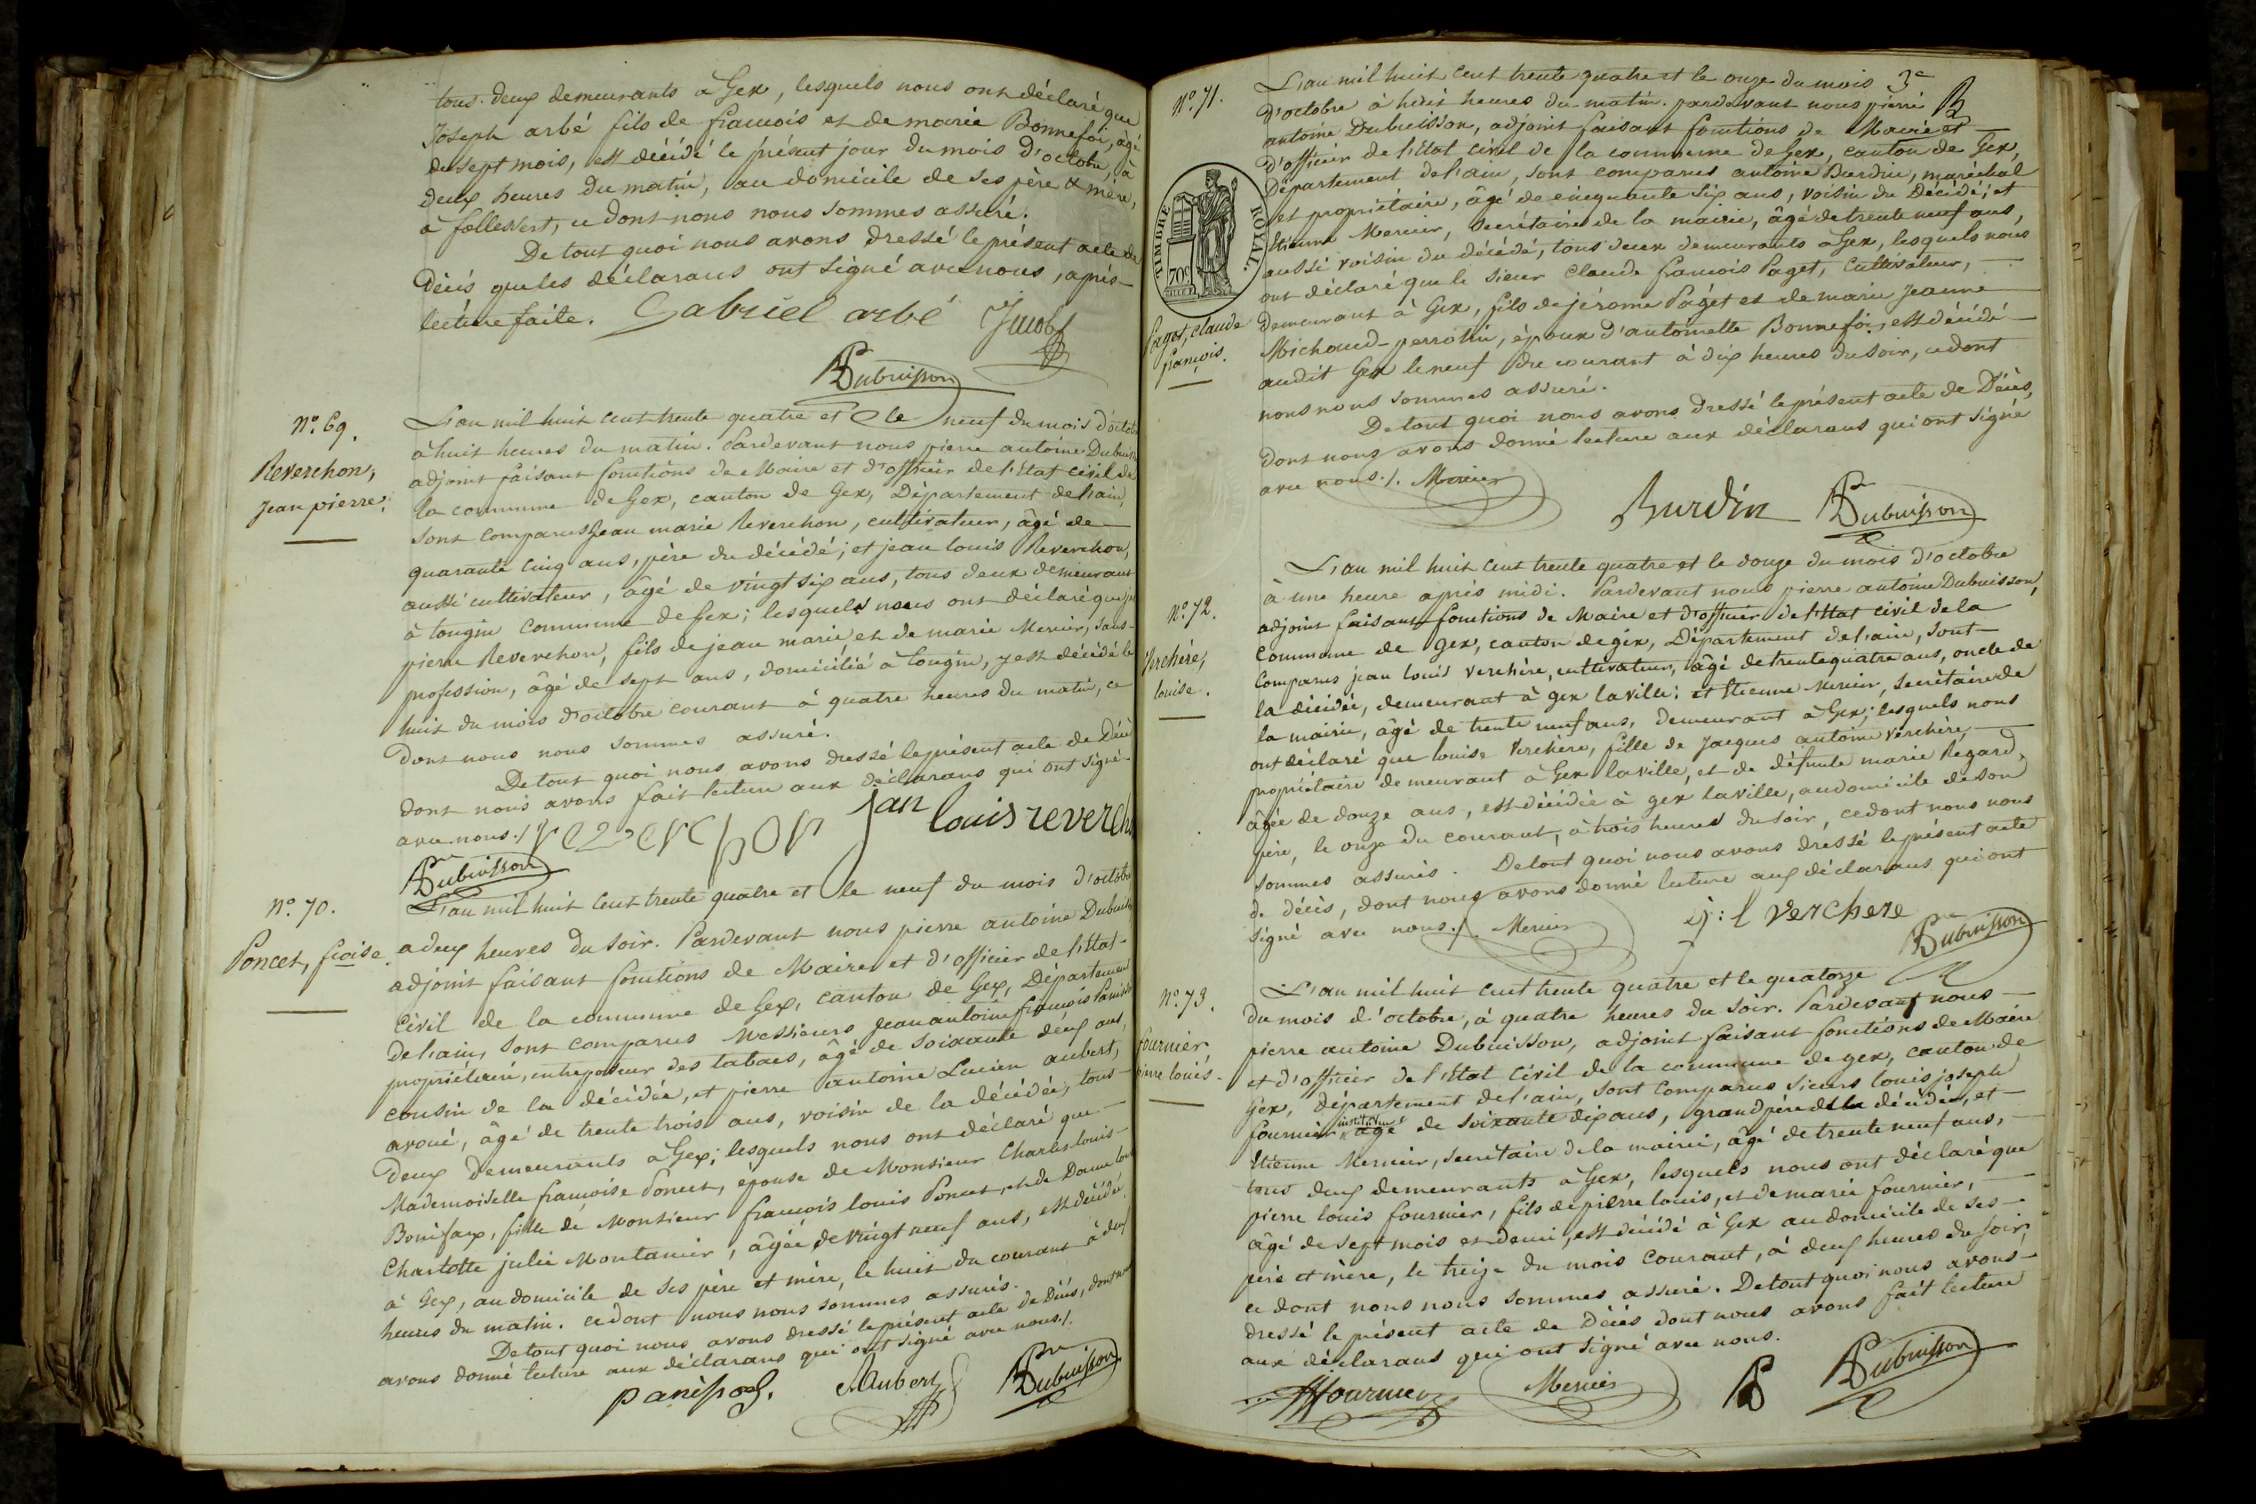 tous deux demeurants à Gex, lesquels nous ont déclaré que
Joseph arbé fils de francois et de marie Bonnefoi, âgé
de sept mois, est décédé le présent jour du mois d'octobre, à
deux heures du matin, au domicile de ses père & mère,
à follesvert, ce dont nous nous sommes assuré.
De tout quoi nous avons dressé le présent acte de
décès que les déclarans ont signé avec nous, après
lecture faite. Gabriel arbé Jacob
Dubuisson
N° 69.
Reverchon,
jean pierre.
L'an mil huit cent trente quatre et le neuf du mois d'octobre
à huit heures du matin. Pardevant nous pierre antoine Dubuisson
adjoint faisant fonctions de Maire et d'officier de l'Etat civil de
la commune de Gex, canton de Gex, Département de l'ain,
sont comparus Jean marie Reverchon, cultivateur, âgé de
quarante cinq ans, père du décédé; et jean louis Reverchon,
aussi cultivateur, âgé de vingt six ans, tous deux demeurant
à tougin commune de Gex; lesquels nous ont déclaré que jean
pierre Reverchon, fils de jean marie et de marie Mercier, sans
profession, âgé de sept ans, domicilié à tougin, y est décédé le
huit du mois d'octobre courant à quatre heures du matin, ce
dont nous nous sommes assuré.
De tout quoi nous avons dressé le présent acte de Décès
dont nous avons fait lecture aux déclarans qui ont signé
avec nous./. reverchon jan louis reverch
Dubuisson
N° 70.
Poncet, fçoise.
L'an mil huit cent trente quatre et le neuf du mois d'octobre
a deux heures du soir. Pardevant nous pierre antoine Dubuisson
adjoint faisant fonctions de Maire et d'officier de l'Etat
Civil de la commune de Gex, canton de Gex, Département
de l'ain, sont comparus Messieurs Jean antoine françois Panissod
propriétaire, entreposeur des tabacs, âgé de soixante deux ans,
cousin de la décédée, et pierre antoine Lucien aubert,
avoué, âgé de trente trois ans, voisin de la décédée, tous
deux demeurants à Gex; lesquels nous ont déclaré que
Mademoiselle françoise Poncet, épouse de Monsieur Charles louis
Bonifax, fille de Monsieur francois louis Poncet, et de Dame
Charlotte julie Montanier, âgée de vingt neuf ans, est décédée
à Gex, au domicile de ses père et mère, le huit du courant à deux
heures du matin. ce dont nous nous sommes assurés.
De tout quoi nous avons dressé le présent acte de Décès, dont nous
avons donné lecture aux déclarans qui ont signé avec nous./.
panissod. Aubert Dubuisson
3e
N° 71.
TIMBRE ROYAL
70c
Paget, Claude
françois.
L'an mil huit cent trente quatre et le onze du mois
d'octobre à huit heures du matin. pardevant nous pierre
antoine Dubuisson, adjoint faisant fonctions de Maire et
d'officier de l'Etat civil de la commune de Gex, canton de Gex,
Département de l'ain, sont comparus antoine Burdin, maréchal
et propriétaire, âgé de cinquante six ans, voisin du décédé; et
Etienne Mercier, secrétaire de la mairie, âgé de trente neuf ans,
aussi voisin du décédé, tous deux demeurants à Gex, lesquels nous
ont déclaré que le sieur Claude francois Paget, Cultivateur,
demeurant à Gex, fils de jérome Paget et de marie Jeanne
Michaud-perrotin, époux d'antoinette Bonnefoi, est décédé
audit Gex le neuf du courant à dix heures du soir, ce dont
nous nous sommes assuré.
De tout quoi nous avons dressé le présent acte de Décès,
dont nous avons donné lecture aux déclarans qui ont signé
avec nous./. Mercier
Burdin Dubuisson
N° 72.
Verchère,
louise.
L'an mil huit cent trente quatre et le douze du mois d'octobre
à une heure après midi. Pardevant nous pierre antoine Dubuisson,
adjoint faisant fonctions de Maire et d'officier de l'Etat civil de la
Commune de Gex, canton de gex, Département de l'ain, sont
comparus jean louis verchère, cultivateur, âgé de trente quatre ans, oncle de
la décédée, demeurant à gex la ville; et Etienne Mercier, secrétaire de
la mairie, âgé de trente neuf ans, demeurant à Gex; lesquels nous
ont déclaré que louise Verchère, fille de Jacques antoine verchère,
propriétaire demeurant à Gex la ville, et de défunte marie Regard,
âgée de douze ans, est décédée à gex la ville, au domicile de son
père, le onze du courant, à trois heures du soir, ce dont nous nous
sommes assurés. De tout quoi nous avons dressé le présent acte
de décès, dont nous avons donné lecture aux déclarans qui ont
signé avec nous./. Mercier j: l verchere
Dubuisson
N° 73.
fournier
pierre louis.
L'an mil huit cent trente quatre et le quatorze
du mois d'octobre, à quatre heures du soir. Pardevant nous
pierre antoine Dubuisson, adjoint faisant fonctions de Maire
et d'officier de l'Etat Civil de la commune de gex, canton de
Gex, département de l'ain, sont comparus sieurs louis joseph
instituteur
fournier âgé de soixante dix ans, grand père de la décédée, et
Etienne Mercier, secrétaire de la mairie, âgé de trente neuf ans,
tous deux demeurants à Gex, lesquels nous ont déclaré que
pierre louis fournier, fils de pierre louis, et de marie fournier,
âgé de sept mois et demi, est décédé à Gex au domicile de ses
père et mère, le treize du mois courant, à deux heures du soir,
ce dont nous nous sommes assuré. De tout quoi nous avons
dressé le présent acte de Décès dont nous avons fait lecture
aux déclarans qui ont signé avec nous.
fournier Mercier Dubuisson